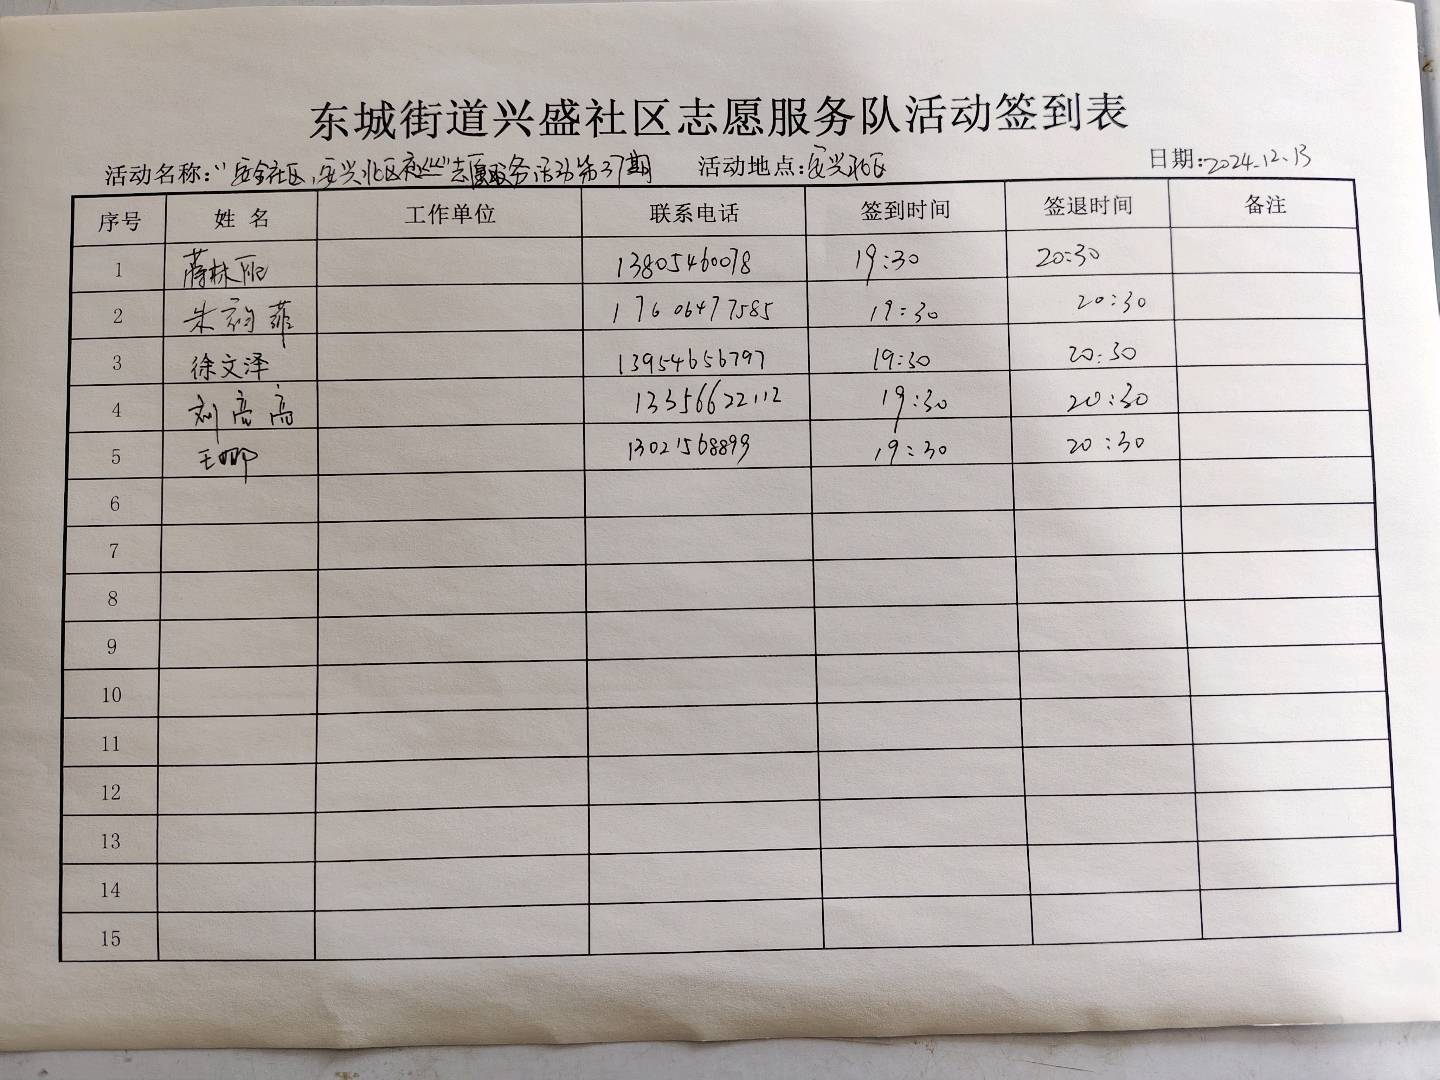 东城街道兴盛社区志愿服务队活动签到表
活动名称:"安全社区,安兴北区夜巡"志愿服务活动第37期 活动地点:安兴北区 日期:2024.12.13
序号 姓名 工作单位 联系电话 签到时间 签退时间 备注
1 蒋林 13805460078 19:30 20:30
2 朱韵菲 17606477585 19:30 20:30
3 徐文泽 13954656797 19:30 20:30
4 刘高高 13356622112 19:30 20:30
5 王娜 13021568899 19:30 20:30
6
7
8
9
10
11
12
13
14
15